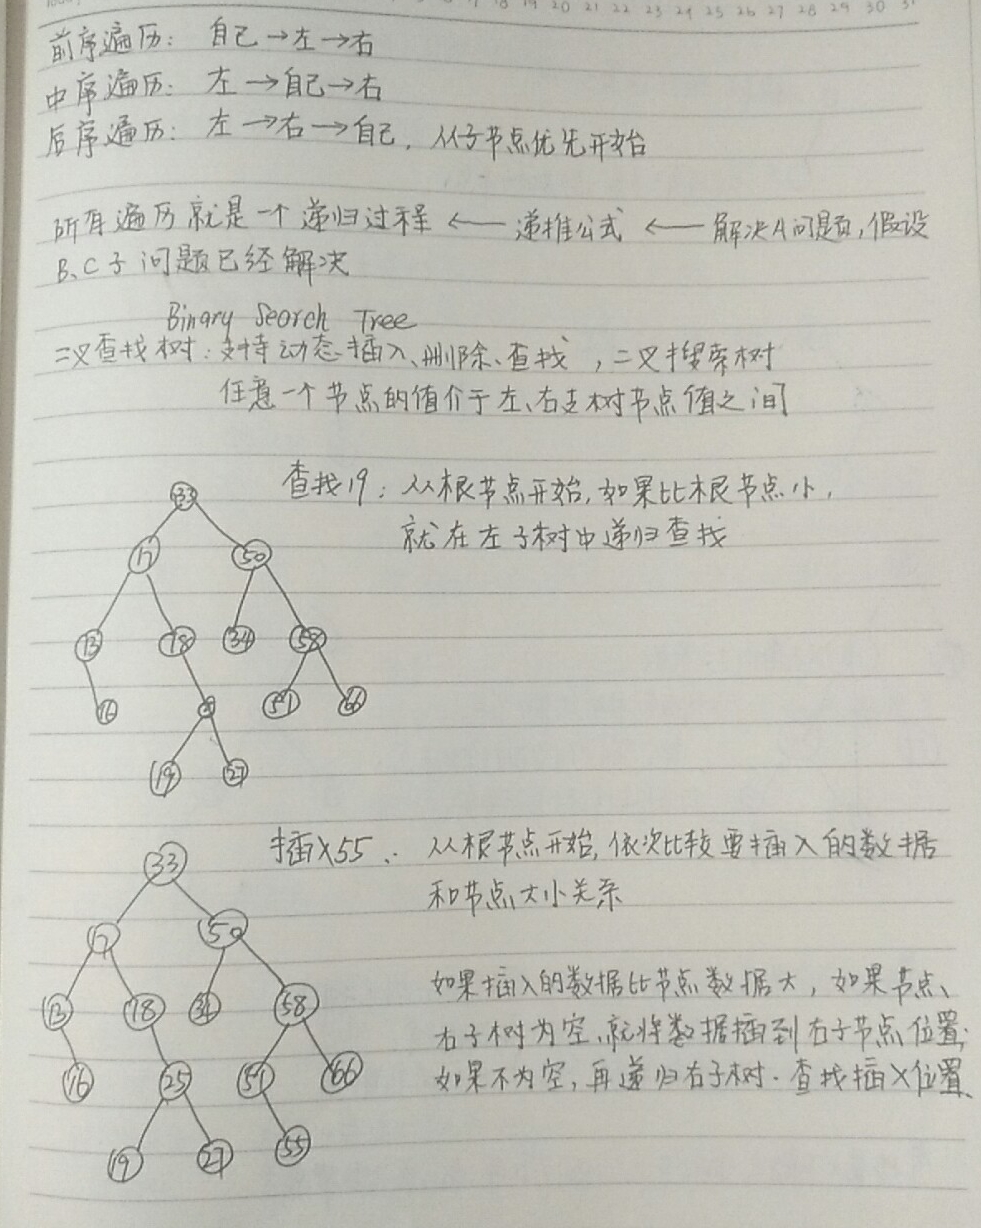 17 18 19 20 21 22 23 24 25 26 27 28 29 30 31
前序遍历: 自己→左→右
中序遍历: 左→自己→右
后序遍历: 左→右→自己, 从子节点优先开始
所有遍历就是一个递归过程 ← 递推公式 ← 解决A问题,假设
B、C子问题已经解决
Binary Search Tree
二叉查找树: 支持动态插入、删除、查找, 二叉搜索树
任意一个节点的值介于左、右支树节点值之间
查找19: 从根节点开始,如果比根节点小,
就在左子树中递归查找
33
17 50
13 18 34 58
16 51 66
19 27
插入55: 从根节点开始,依次比较要插入的数据
和节点大小关系
如果插入的数据比节点数据大, 如果节点、
右子树为空、就将数据插到右子节点位置;
如果不为空, 再递归右子树. 查找插入位置、
33
17 50
13 18 34 58
16 25 51 66
19 27 55